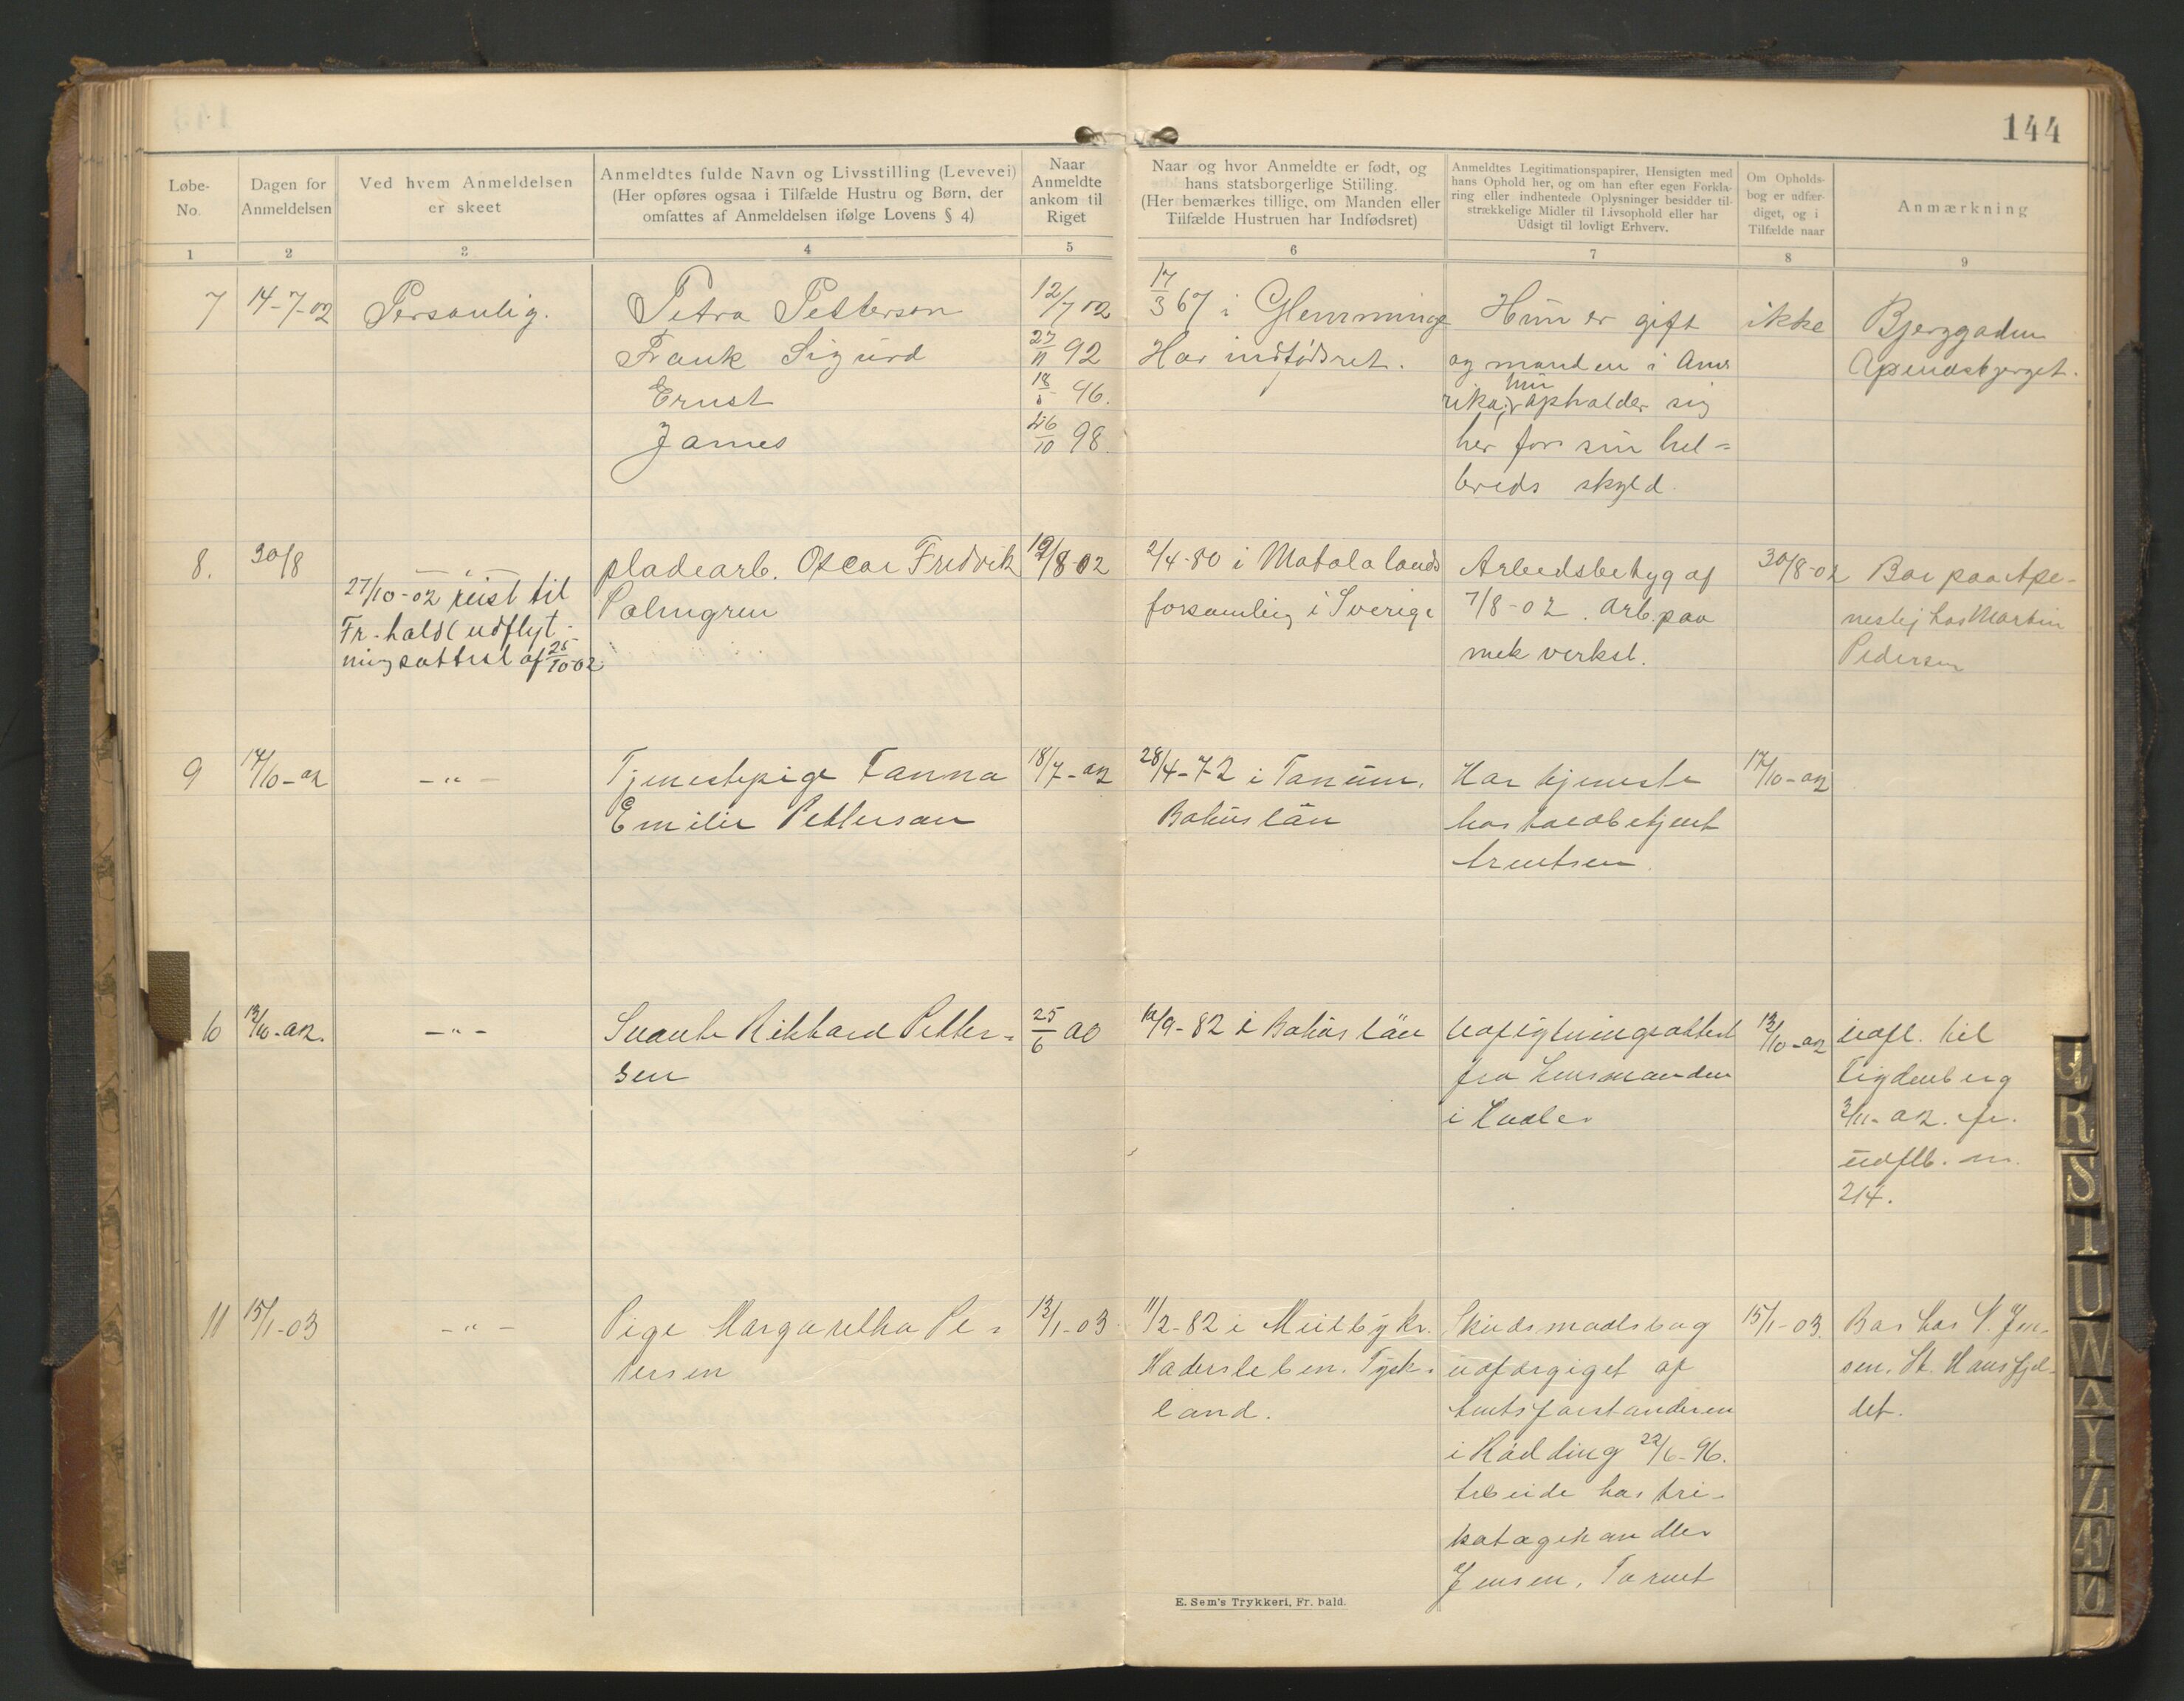 144
Løbe-
No.
Dagen for
Anmeldelsen
Ved hvem Anmeldelsen
er skeet
Anmeldtes fulde Navn og Livsstilling (Levevei)
(Her opføres ogsaa i Tilfælde Hustru og Børn, der
omfattes af Anmeldelsen ifølge Lovens § 4)
Naar
Anmeldte
ankom til
Riget
Naar og hvor Anmeldte er født, og
hans statsborgerlige Stilling.
(Her bemærkes tillige, om Manden eller
Tilfælde Hustruen har Indfødsret)
Anmeldtes Legitimationspapirer, Hensigten med
hans Ophold her, og om han efter egen Forkla-
ring eller indhentede Oplysninger besidder til-
strækkelige Midler til Livsophold eller har
Udsigt til lovligt Erhverv.
Om Opholds-
bog er udfær-
diget, og i
Tilfælde naar
Anmærkning
1 2 3 4 5 6 7 8 9
7
14-7-02
Personlig.
Petra Petterson
Frank Sigurd
Ernst
James
12/7 02
27/11 92
18 96.
26/10 98.
17/3 67 i Glemminge
Har indfødsret.
Hun er gift
og manden i Ame
rika; hun opholder sig
her for sin hel=
breds skyld.
ikke
Bjerggaden
Apenæsbjerget.
8.
30/8
— " —
27/10-02 reist til
Fr.hald (udflyt-
ningsattest af 25/10-02
pladearb. Oscar Fredrik
Palmgren
19/8-02
2/4-80 i Motala lands
forsamling i Sverige
Arbedsbetyg af
7/8-02. Arb. paa
mek verkst.
30/8-02
Bor paa Ape-
nesbj hos Martin
Pedersen
9
17/10-02
— " —
Tjenestepige Hanna
Emilie Petterson
18/7-02
28/4-72 i Tanum.
Bohuslän
Har tjeneste
hos toldbetjent
Arentsen.
17/10-02
10
13/10-02.
— " —
Svante Rikhard Petter-
sen
25/6 00
10/9-82 i Bohus län
Udflytningsattest
fra Lensmanden
i Hvaler
13/10-02
Udfl. til
Tigdenberg
3/11-02. cfr.
udflb. nr.
214.
11
15/1-03
— " —
Pige Margaretha Pe-
tersen
13/1-03
11/2-82 i Mittby Kr.
Hadersleben. Tysk-
land.
Skudsmaalsbog
udfærgiget af
Amtsforstanderen
i Rödding 22/6-96.
Arbeide hos tri-
kotagehandler
Jensen, Tornet
15/1-03.
Bor hos Jen-
sen. St. Hansfjel-
det.
E. Sem's Trykkeri, Fr. hald.
Q
R
S
T
U
W
A
Y
Z
Æ
Ø